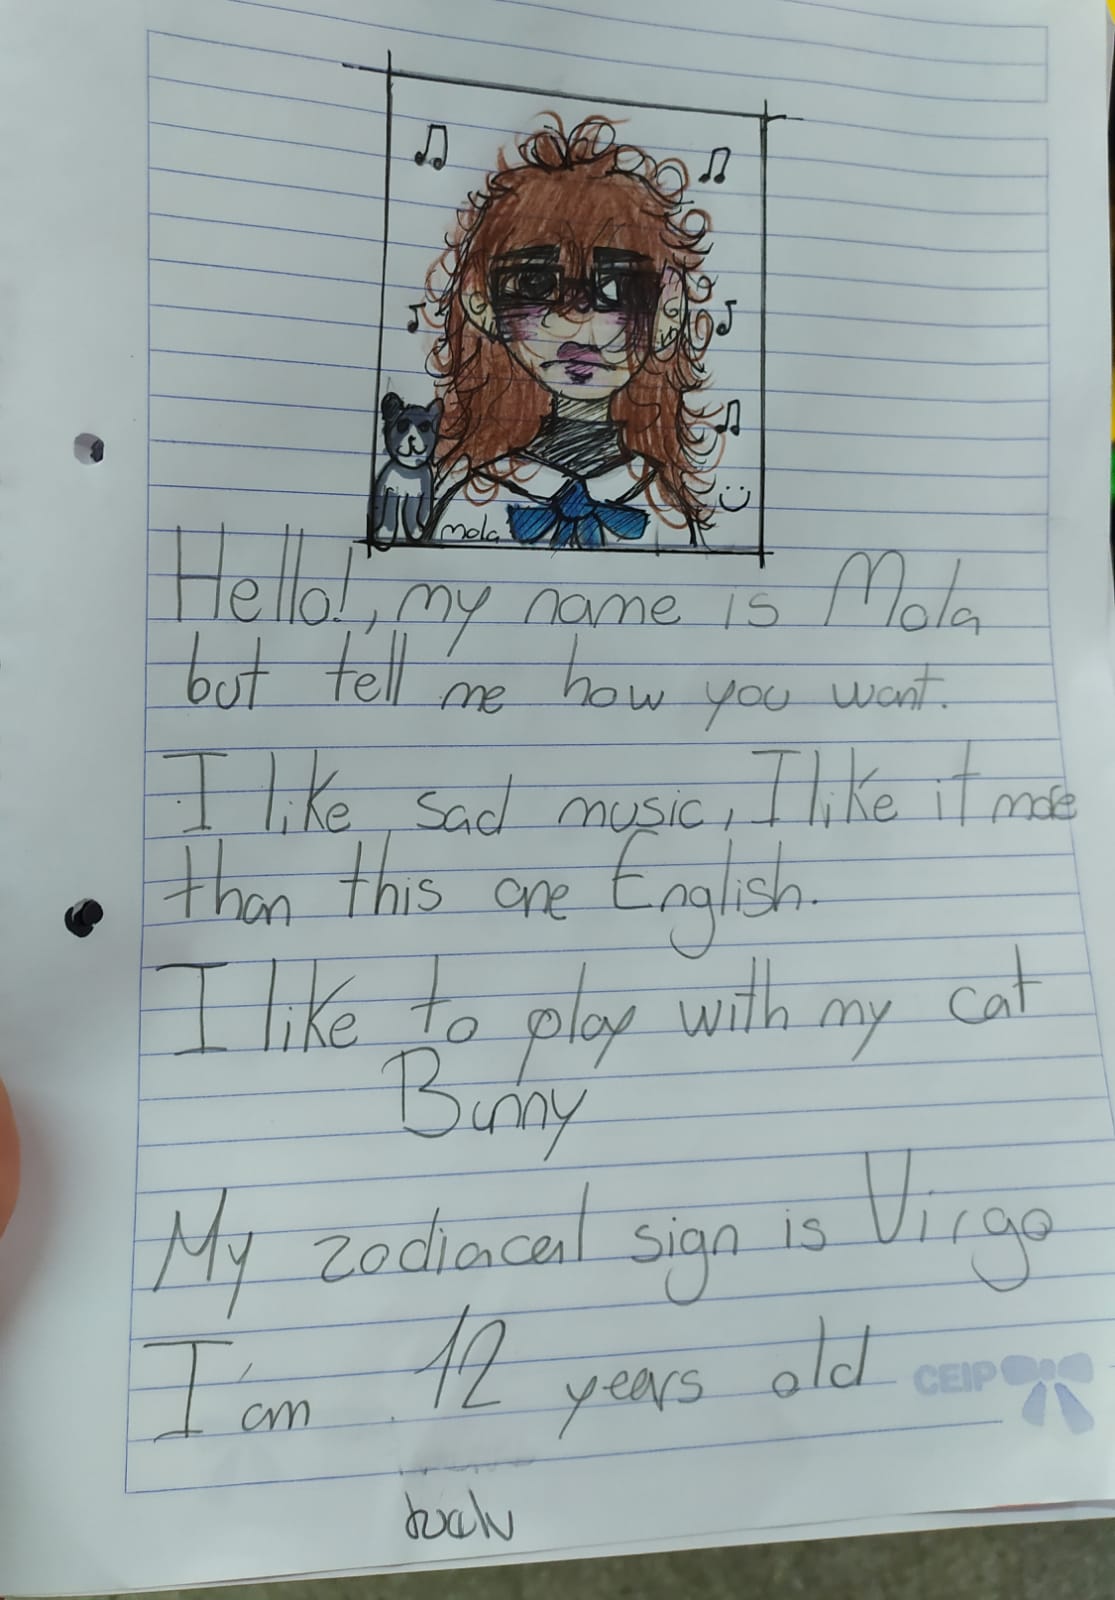 mola
Hello!, my name is Mola
but tell me how you want.
I like sad music, I like it more
than this one English.
I like to play with my cat
Bunny
My zodiacal sign is Virgo
I'am 12 years old
CEIP